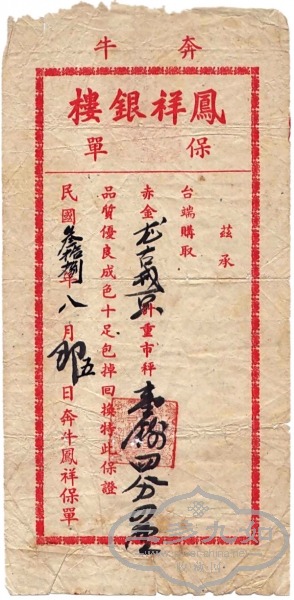 奔牛
鳳祥銀樓
保單
茲承
台端購取
赤金戒計重市秤壹錢四分
品質優良成色十足包掉回換特此保證
民國叁拾捌年八月初五日奔牛鳳祥保單